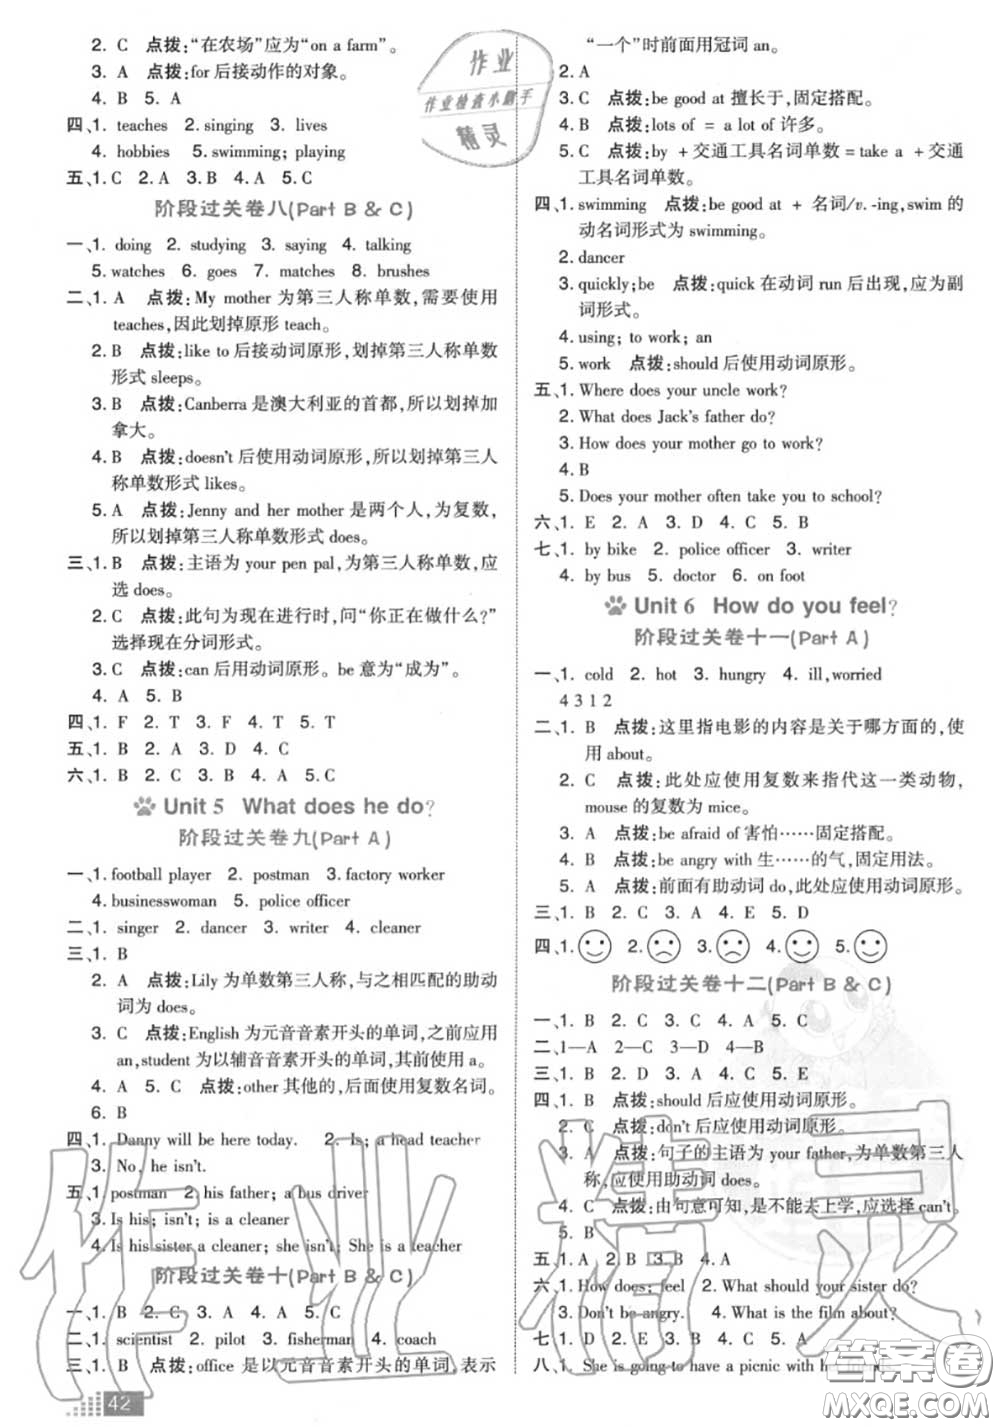 2. C 点拨:“在农场”应为“on a farm”。
3. A 点拨:for 后接动作的对象。
4. B 5. A
四、1. teaches 2. singing 3. lives
4. hobbies 5. swimming; playing
五、1. C 2. A 3. B 4. A 5. C
阶段过关卷八(Part B & C)
一、1. doing 2. studying 3. saying 4. talking
5. watches 6. goes 7. matches 8. brushes
二、1. A 点拨:My mother 为第三人称单数,需要使用
teaches,因此划掉原形 teach。
2. B 点拨:like to 后接动词原形,划掉第三人称单数
形式 sleeps。
3. B 点拨:Canberra 是澳大利亚的首都,所以划掉加
拿大。
4. B 点拨:doesn't 后使用动词原形,所以划掉第三人
称单数形式 likes。
5. A 点拨:Jenny and her mother 是两个人,为复数,
所以划掉第三人称单数形式 does。
三、1. B 点拨:主语为 your pen pal,为第三人称单数,应
选 does。
2. C 点拨:此句为现在进行时,问“你正在做什么?”
选择现在分词形式。
3. C 点拨:can 后用动词原形。be 意为“成为”。
4. A 5. B
四、1. F 2. T 3. F 4. T 5. T
五、1. B 2. A 3. D 4. C
六、1. B 2. B 3. C 4. A 5. C
Unit 5 What does he do?
阶段过关卷九(Part A)
一、1. football player 2. postman 3. factory worker
4. businesswoman 5. police officer
二、1. singer 2. dancer 3. writer 4. cleaner
三、1. B
2. A 点拨:Lily 为单数第三人称,与之相匹配的助动
词为 does。
3. C 点拨:English 为元音音素开头的单词,之前应用
an,student 为以辅音音素开头的单词,前使用 a。
4. A 5. C 点拨:other 其他的,后面使用复数名词。
6. B
四、1. Danny will be here today. 2. Is; a head teacher
3. No, he isn't.
五、1. postman 2. his father; a bus driver
3. Is his; isn't; is a cleaner
4. Is his sister a cleaner; she isn't; She is a teacher
阶段过关卷十(Part B & C)
一、1. B 2. C 3. A 4. B 5. C
二、1. scientist 2. pilot 3. fisherman 4. coach
三、1. B 点拨:office 是以元音音素开头的单词,表示
42
“一个”时前面用冠词 an。
2. A
3. C 点拨:be good at 擅长于,固定搭配。
4. B 点拨:lots of = a lot of 许多。
5. C 点拨:by + 交通工具名词单数 = take a + 交通
工具名词单数。
四、1. swimming 点拨:be good at + 名词/v. -ing, swim 的
动名词形式为 swimming。
2. dancer
3. quickly; be 点拨:quick 在动词 run 后出现,应为副
词形式。
4. using; to work; an
5. work 点拨:should 后使用动词原形。
五、1. Where does your uncle work?
2. What does Jack's father do?
3. How does your mother go to work?
4. B
5. Does your mother often take you to school?
六、1. E 2. A 3. D 4. C 5. B
七、1. by bike 2. police officer 3. writer
4. by bus 5. doctor 6. on foot
Unit 6 How do you feel?
阶段过关卷十一(Part A)
一、1. cold 2. hot 3. hungry 4. ill, worried
4 3 1 2
二、1. B 点拨:这里指电影的内容是关于哪方面的,使
用 about。
2. C 点拨:此处应使用复数来指代这一类动物,
mouse 的复数为 mice。
3. A 点拨:be afraid of 害怕……固定搭配。
4. B 点拨:be angry with 生……的气,固定用法。
5. A 点拨:前面有助动词 do,此处应使用动词原形。
三、1. B 2. C 3. A 4. E 5. D
四、1. 2. 3. 4. 5.
阶段过关卷十二(Part B & C)
一、1. B 2. C 3. C 4. A 5. C
二、1—A 2—C 3—D 4—B
三、1. B 2. D 3. A 4. C 5. E
四、1. B 点拨:should 后应使用动词原形。
2. C 点拨:don't 后应使用动词原形。
3. A 点拨:句子的主语为 your father,为单数第三人
称,应使用助动词 does。
4. C 点拨:由句意可知,是不能去上学,应选择 can't。
五、1. A 2. B 3. B 4. A
六、1. How does; feel 2. What should your sister do?
3. Don't be angry. 4. What is the film about?
七、1. C 2. B 3. C 4. A 5. C
八、1. She is going to have a picnic with h
作业
作业检查小助手
精灵
作业精灵
答案圈
MXQE.COM